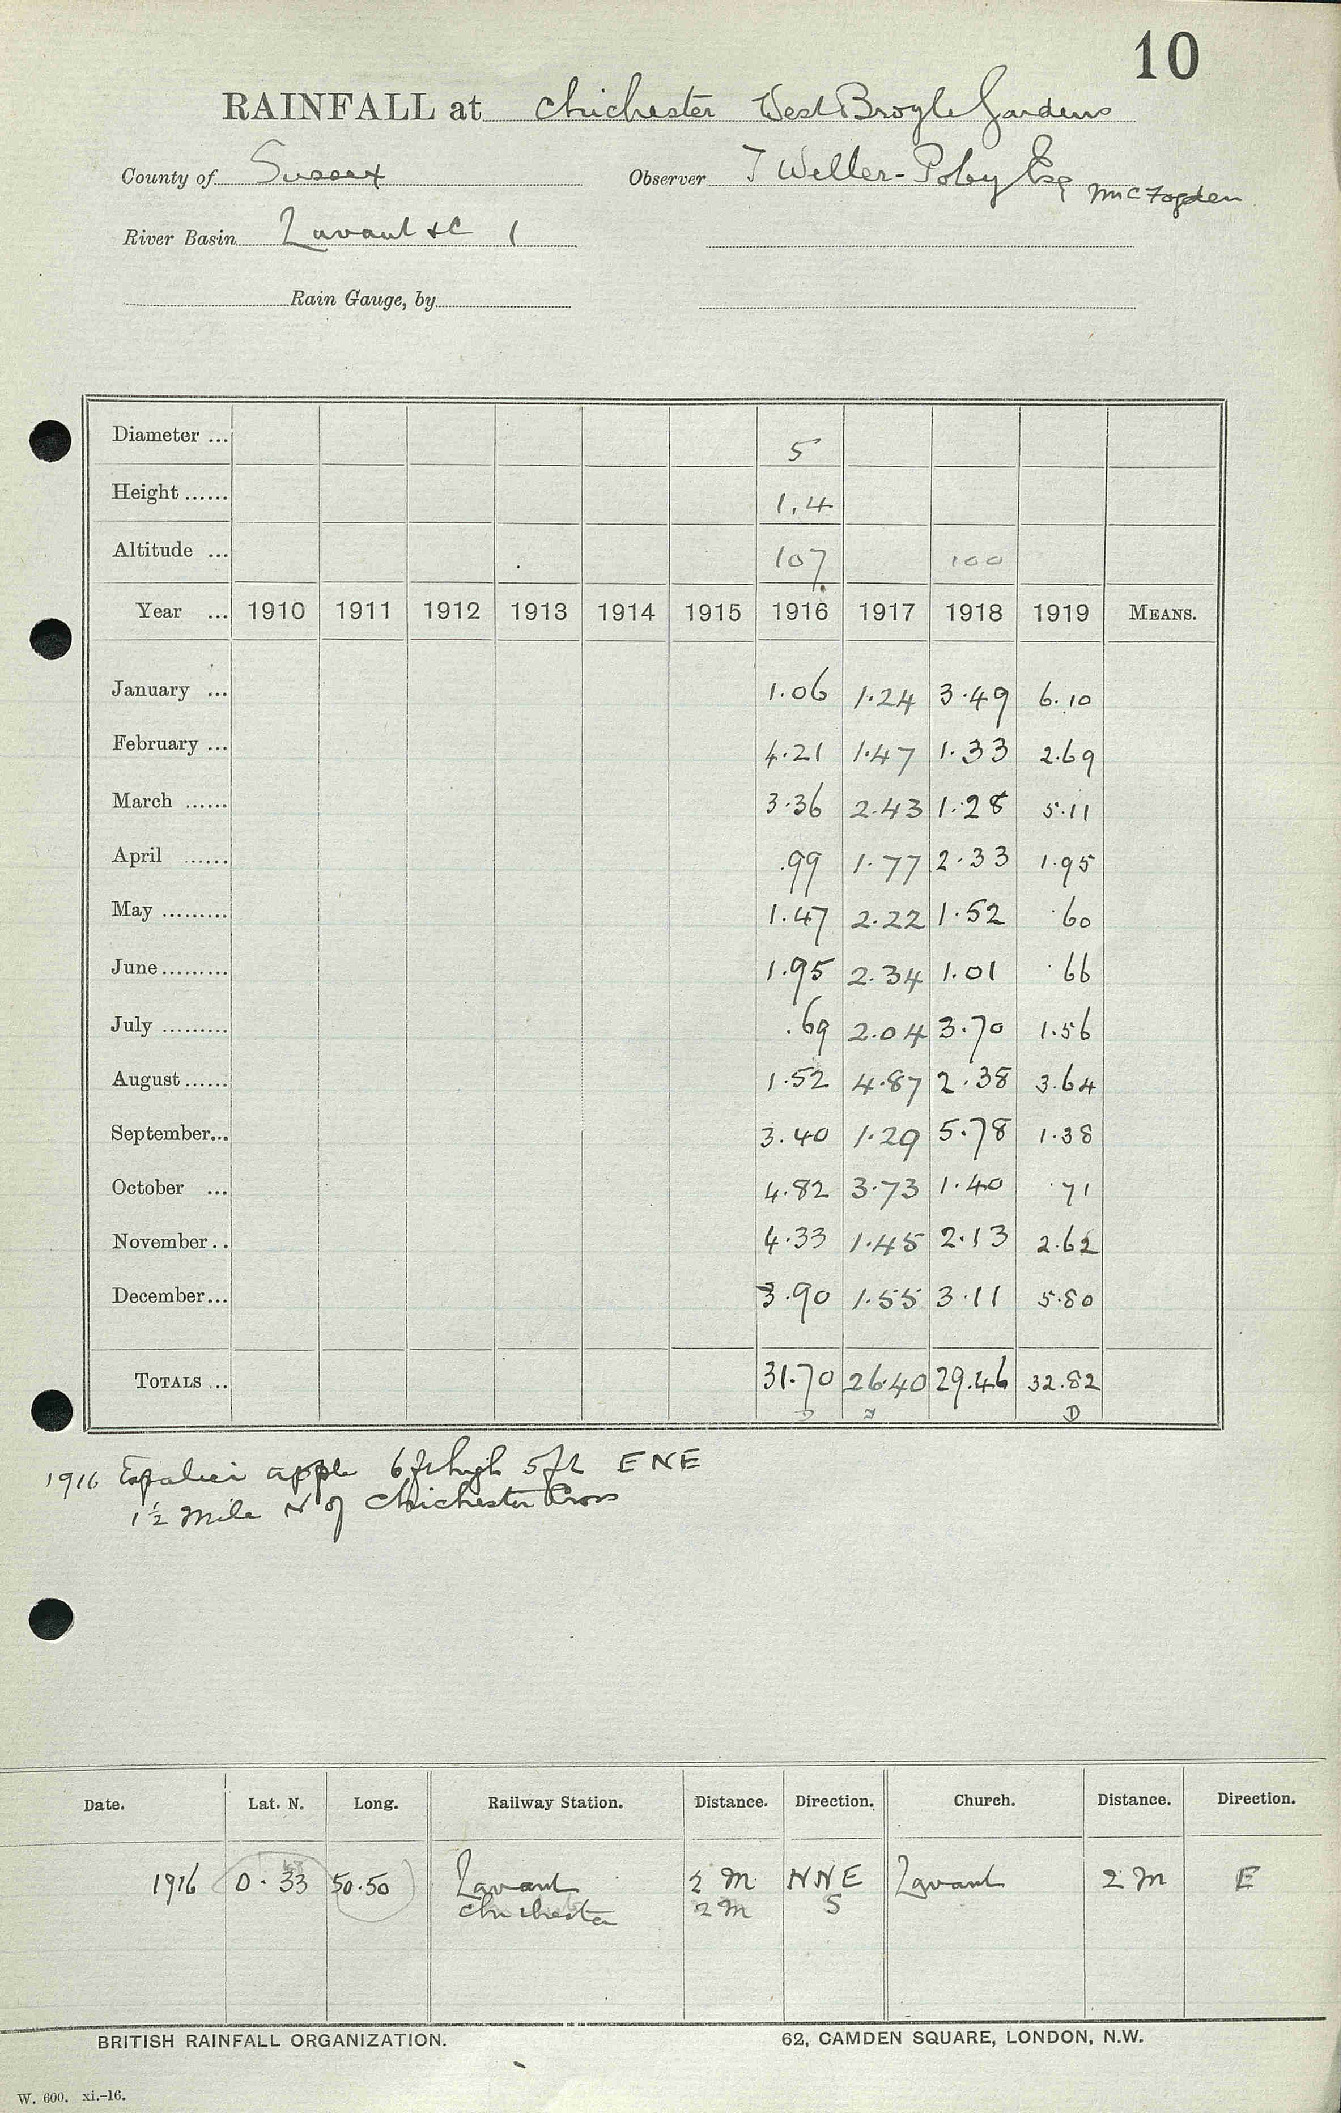 10
RAINFALL at Chichester West Broyle Gardens
County of Sussex Observer T Weller-Poley Esq Mr C Fogden
River Basin Lavant &c 1
Rain Gauge, by
Diameter ... 5
Height ...... 1.4
Altitude ... 107 100
Year ... 1910 1911 1912 1913 1914 1915 1916 1917 1918 1919 MEANS.
January ... 1.06 1.24 3.49 6.10
February ... 4.21 1.47 1.33 2.69
March ...... 3.36 2.43 1.28 5.11
April ...... .99 1.77 2.33 1.95
May ......... 1.47 2.22 1.52 .60
June ......... 1.95 2.34 1.01 .66
July ......... .69 2.04 3.70 1.56
August ...... 1.52 4.87 2.38 3.64
September... 3.40 1.29 5.78 1.38
October ... 4.82 3.73 1.40 .71
November .. 4.33 1.45 2.13 2.62
December... 3.90 1.55 3.11 5.80
TOTALS ... 31.70 26.40 29.46 32.82
D
1916 Espalier apple 6ft high 5ft ENE
1½ mile N of Chichester Cross
Date. Lat. N. Long. Railway Station. Distance. Direction. Church. Distance. Direction.
1916 0.33 50.50 Lavant ½ m NNE Lavant 2 m E
Chichester 2 m S
BRITISH RAINFALL ORGANIZATION. 62, CAMDEN SQUARE, LONDON, N.W.
W. 600. xi.-16.